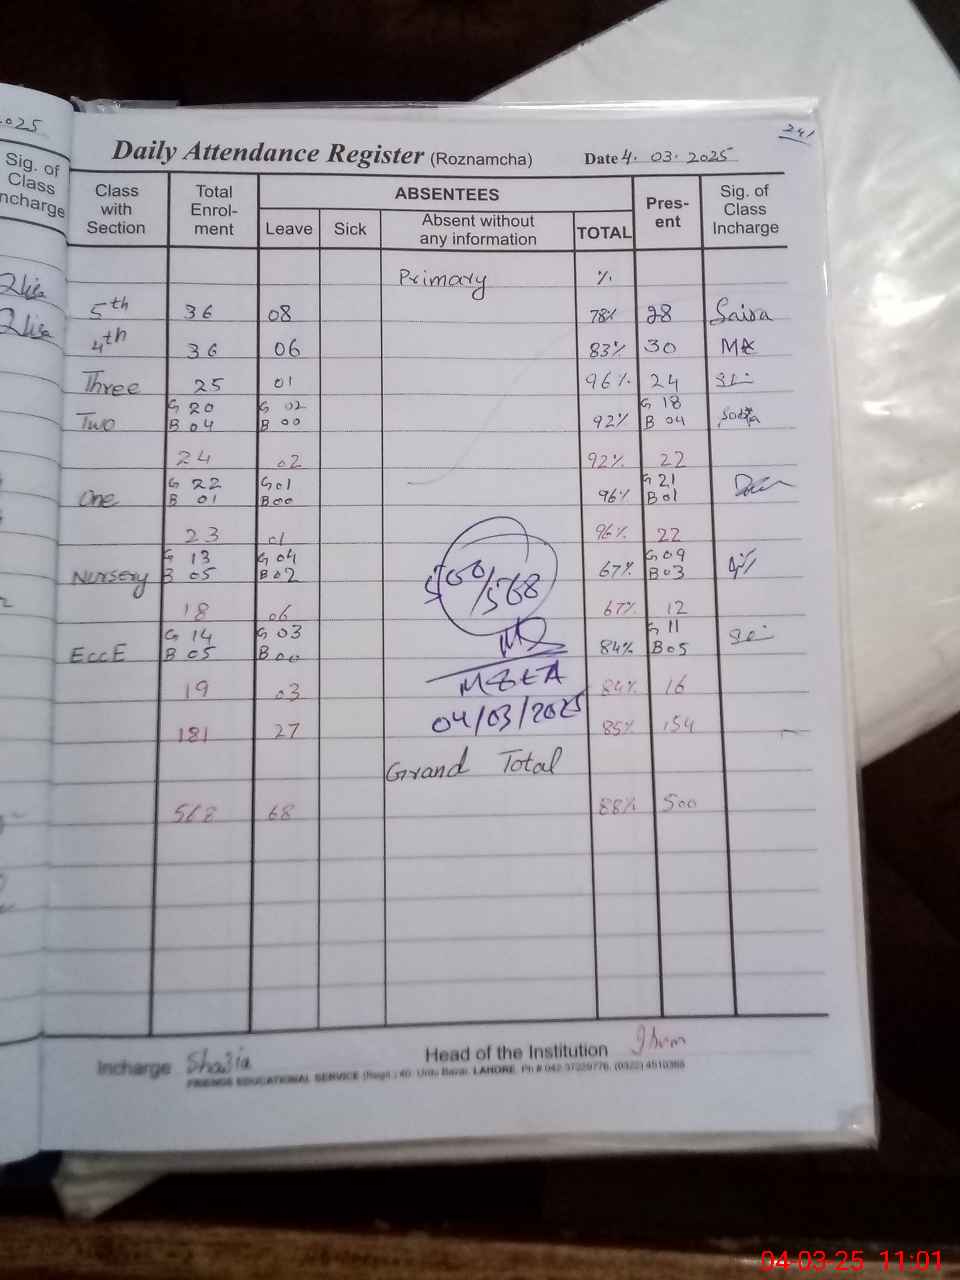 2025
241
Daily Attendance Register (Roznamcha) Date 4. 03. 2025
Sig. of Class Incharge
Class with Section Total Enrol-ment ABSENTEES Pres-ent Sig. of Class Incharge
Leave Sick Absent without any information TOTAL
Primary %
5th 36 08 78% 28 Saira
4th 36 06 83% 30
Three 25 01 96% 24
G 20 G 02 G 18
Two B 04 B 00 92% B 04
24 02 92% 22
G 22 G01 G 21
One B 01 B00 96% B01
23 01 96% 22
G 13 G 04 G 09
Nursery B 05 B02 67% B03
18 06 67% 12
G 14 G 03 G 11
EccE B 05 B 00 84% B05
19 03 84% 16
181 27 85% 154
500/568
MEEA
04/03/2025
Grand Total
568 68 88% 500
Incharge Shazia Head of the Institution
FRIENDS EDUCATIONAL SERVICE (Regd.) 40. Urdu Bazar. LAHORE. Ph # 042-37229776, (0322) 4510388
04-03-25 11:01